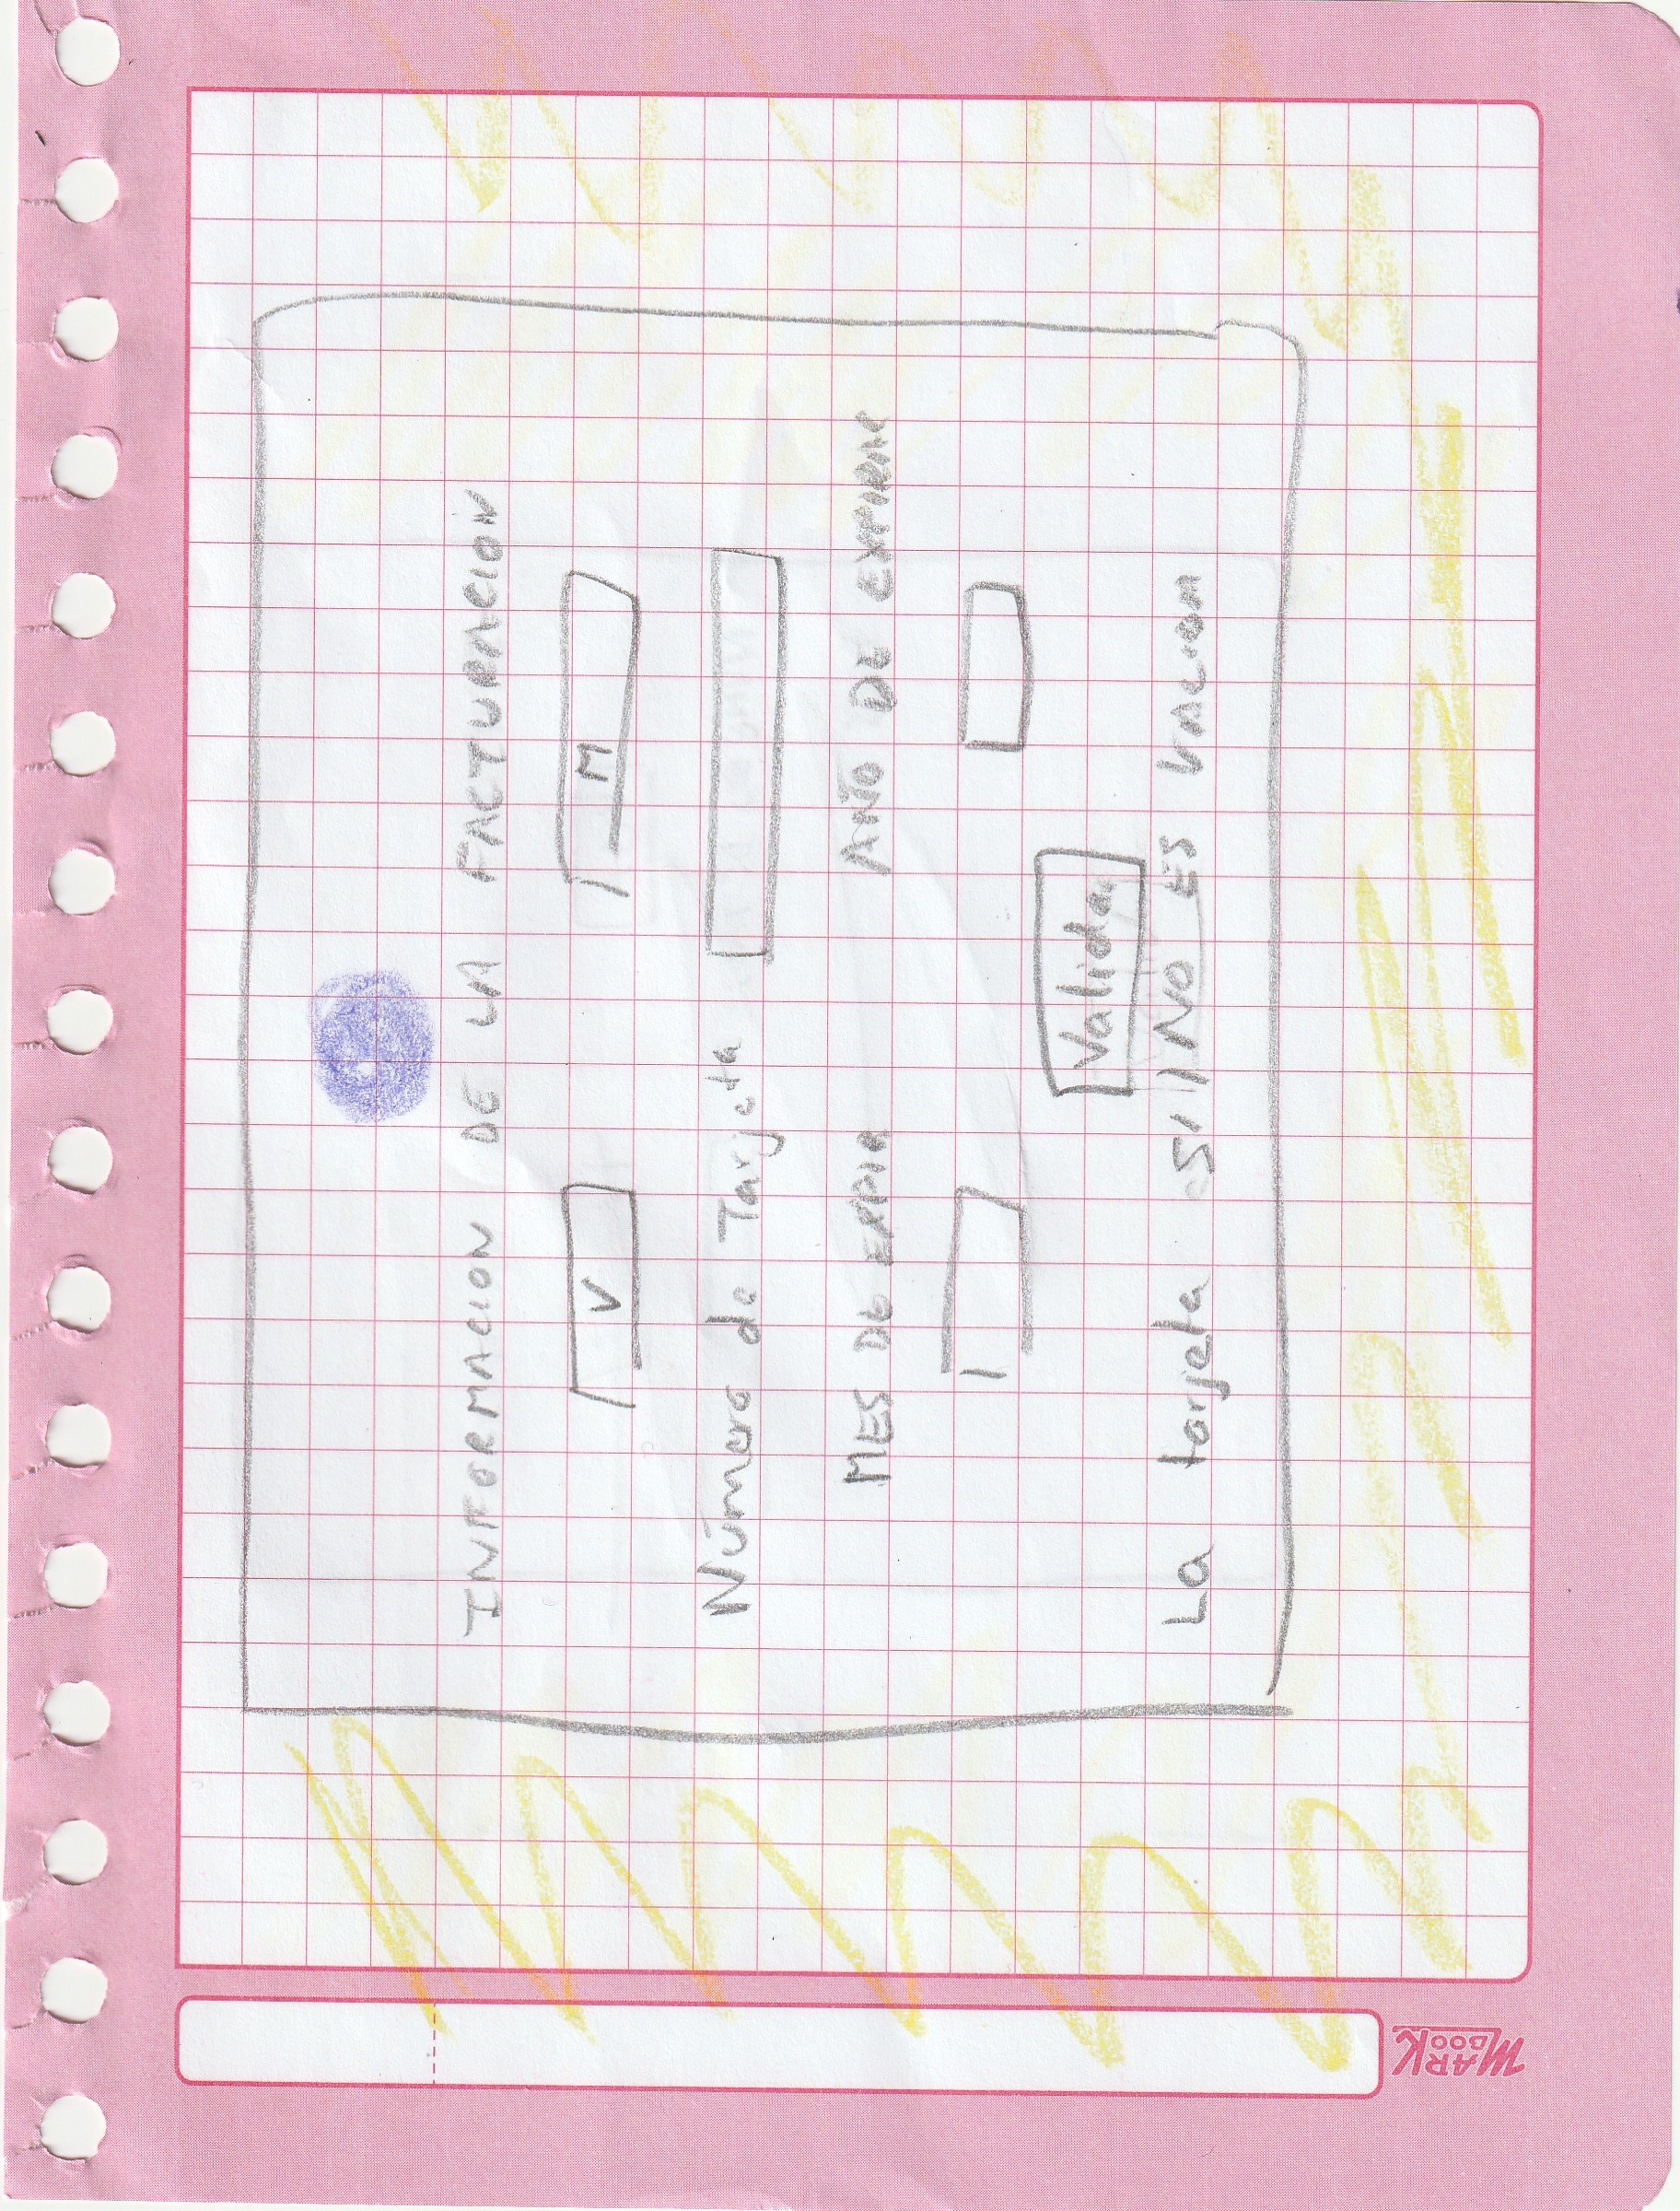 INFORMACION DE LA FACTURACION
V M
Número de Tarjeta
MES DE EXPIR AÑO DE EXPIRAR
Validar
La tarjeta SI | NO ES
MARK BOOK